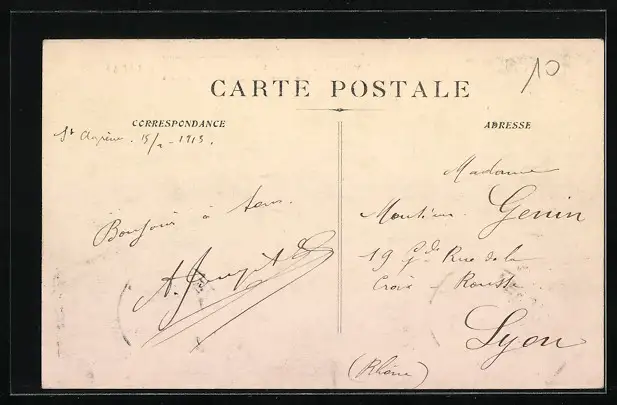 10
CARTE POSTALE
CORRESPONDANCE
ADRESSE
St Agrève. 15/2-1913.
Bonjour à tous.
A.
Madame
Genin
19 Gde Rue de la
Croix-Rousse
Lyon
(Rhône)